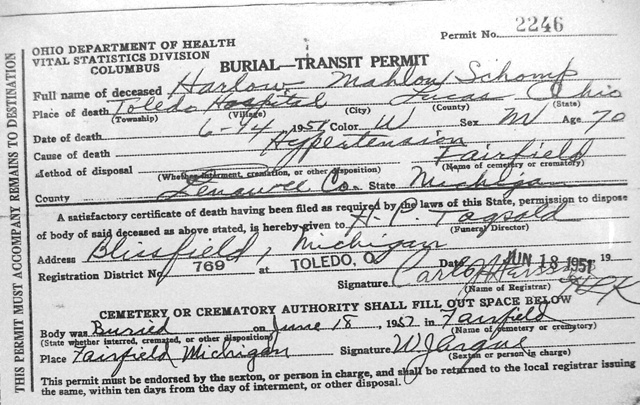 Permit No. 2246
OHIO DEPARTMENT OF HEALTH
VITAL STATISTICS DIVISION
COLUMBUS
BURIAL—TRANSIT PERMIT
Full name of deceased Harlow Mahlon Schomp
Place of death Toledo Hospital Lucas Ohio
(Township) (Village) (City) (County) (State)
Date of death 6-14 1957 Color W Sex M Age 70
Cause of death Hypertension
Method of disposal Fairfield
(Whether interment, cremation, or other disposition) (Name of cemetery or crematory)
County Lenawee Co. State Michigan
A satisfactory certificate of death having been filed as required by the laws of this State, permission to dispose
of body of said deceased as above stated, is hereby given to H. P. Tagsold
(Funeral Director)
Address Blissfield, Michigan Date JUN 18 1957 19
Registration District No. 769 at TOLEDO, O. Signature
(Name of Registrar)
CEMETERY OR CREMATORY AUTHORITY SHALL FILL OUT SPACE BELOW
Body was Buried on June 18, 1957 in Fairfield
(State whether interred, cremated, or other disposition) (Name of cemetery or crematory)
Place Fairfield Michigan Signature
(Sexton or person in charge)
This permit must be endorsed by the sexton, or person in charge, and shall be returned to the local registrar issuing
the same, within ten days from the day of interment, or other disposal.
THIS PERMIT MUST ACCOMPANY REMAINS TO DESTINATION